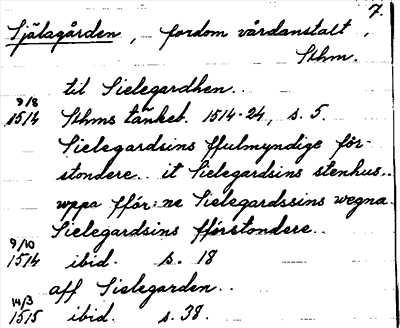 7.
Själagården, fordom vårdanstalt,
Sthm.
til Sielegardhen..
9/8
1514 Sthms tänkeb. 1514-24, s. 5.
Sielegardsins ffulmyndige för-
stondere.. it Sielegardsins stenhus..
wppa fför:ne Sielegardssins wegna.
Sielegardsins fförstondere..
9/10
1514 ibid. s. 18
aff Sielegarden..
14/3
1515 ibid. s. 38.